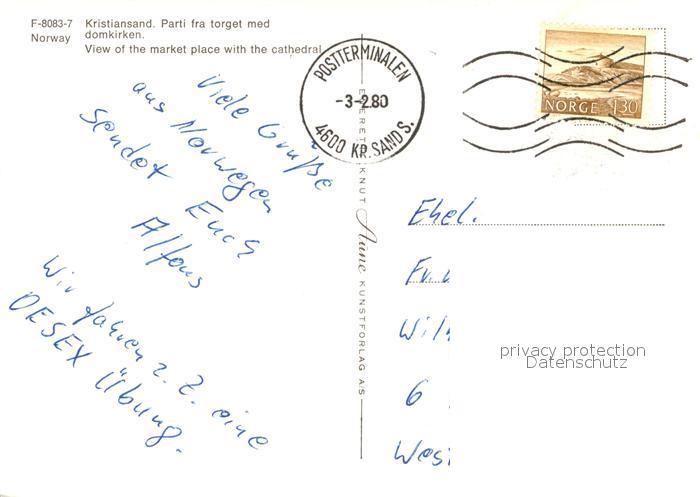 F-8083-7 Kristiansand. Parti fra torget med
Norway domkirken.
View of the market place with the cathedral
POSTTERMINALEN
-3-2.80
4600 KR.SAND S.
NORGE 130
Viele Grüße
aus Norwegen
sendet Euch
Alfons
Wir fahren z. Z. eine
DESEX Übung.
ENERETT KNUT Aune KUNSTFORLAG A/S
Ehel.
6
privacy protection
Datenschutz